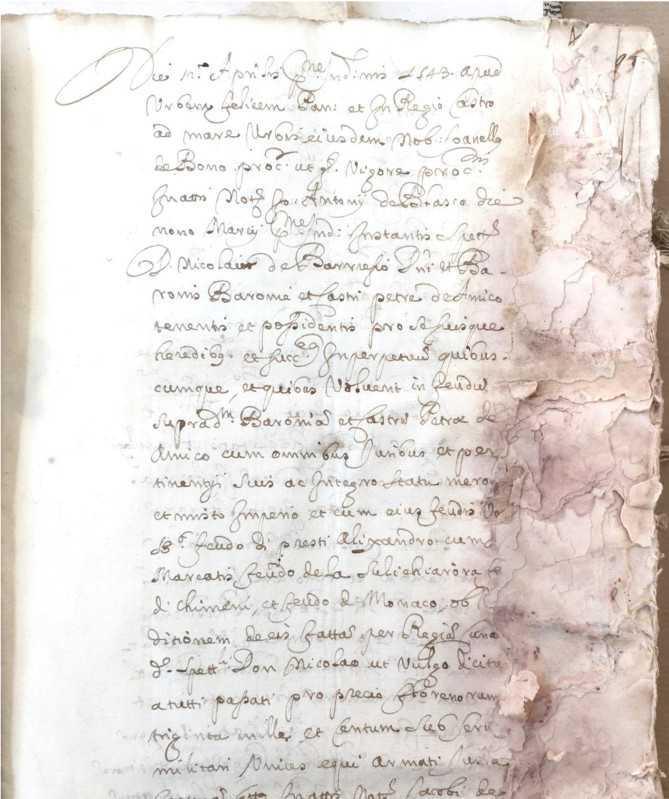 Die 11.º Aprilis p.me Ind.nis 1543. apud
Urbem felicem Pan: et in Regio Castro
ad mare Urbis eiusdem Nob: Joanello
de Bono proc.r ut p.t Vigore proc.nis
in actis Not.s Antonij de die
nono Martij p.me Ind: Instantis
D. Nicolaus de Barresio D.ni et Ba-
ronis Baronie et Castri petre de Amico
tenentis et possidentis pro se suisque
heredibq. et succ.eq in perpetuũ quibus-
cumque, et quibus Voluerit in feudũ
suprad.m Baroniã et Castrũ Petræ de
Amico cum omnibus Juribus et per
tinentijs suis ac Integro statu mero
et misto Imperio et cum eius feudis
feudo di presti Alixandro cum
Marcato feudo de la
di Chimeni, et feudo de Monaco, ob
ditionem de eis fattã per Regiã
d. spett. Don Nicolao ut Vulgo dicitur
a tutti passati pro precio florenorum
triginta mille, et Centum sub
militari Unius equi armati
in actis Not. Jacobi de